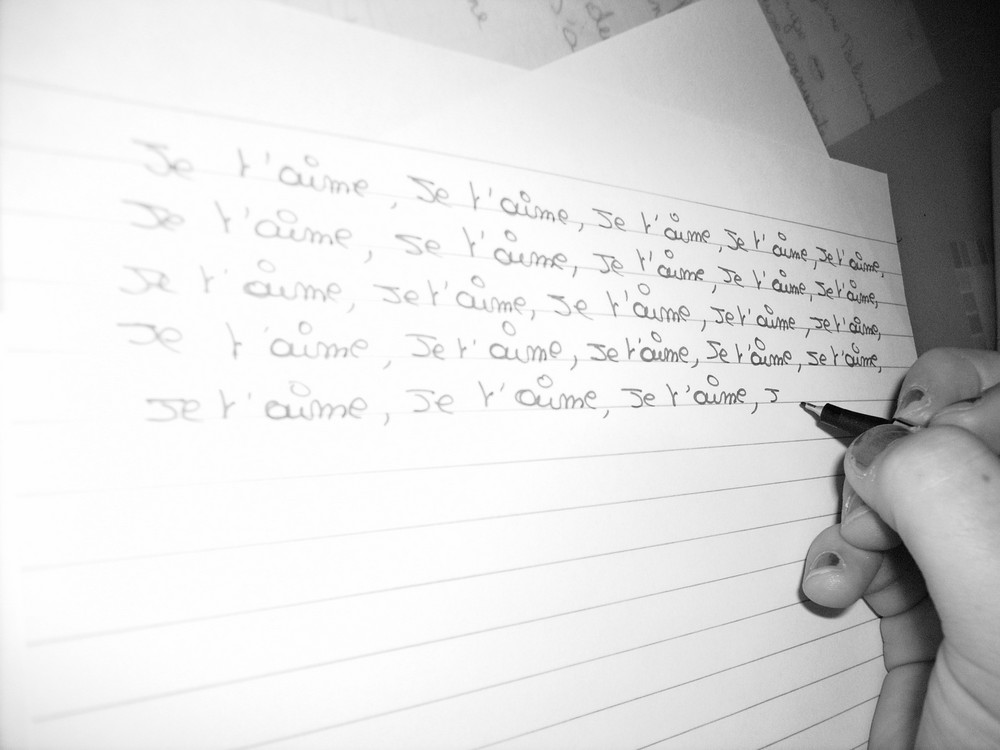 Je t'aime, Je t'aime, Je t'aime, Je t'aime, Je t'aime,
Je t'aime, Je t'aime, Je t'aime, Je t'aime, Je t'aime,
Je t'aime, Je t'aime, Je t'aime, Je t'aime, Je t'aime,
Je t'aime, Je t'aime, Je t'aime, Je t'aime, Je t'aime,
Je t'aime, Je t'aime, Je t'aime, J